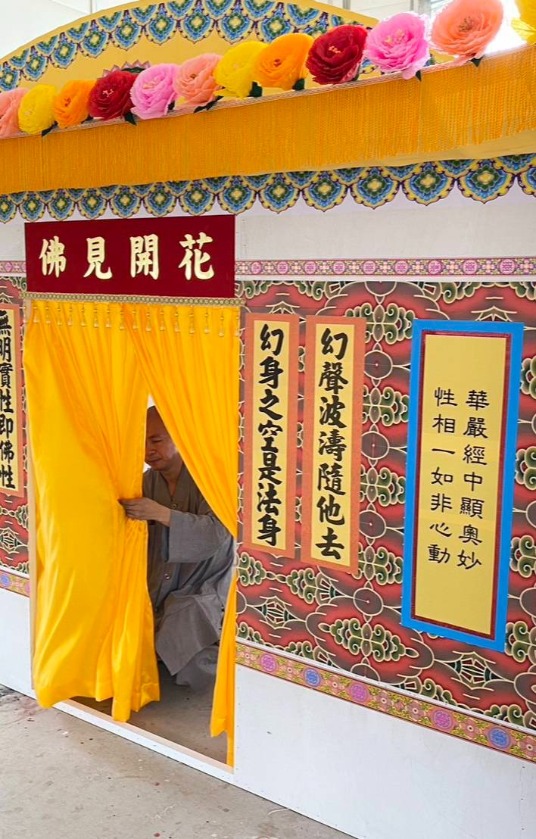 花開見佛
華嚴經中顯奧妙
性相一如非心動
幻聲波濤隨他去
幻身之空是法身
無明實性即佛性